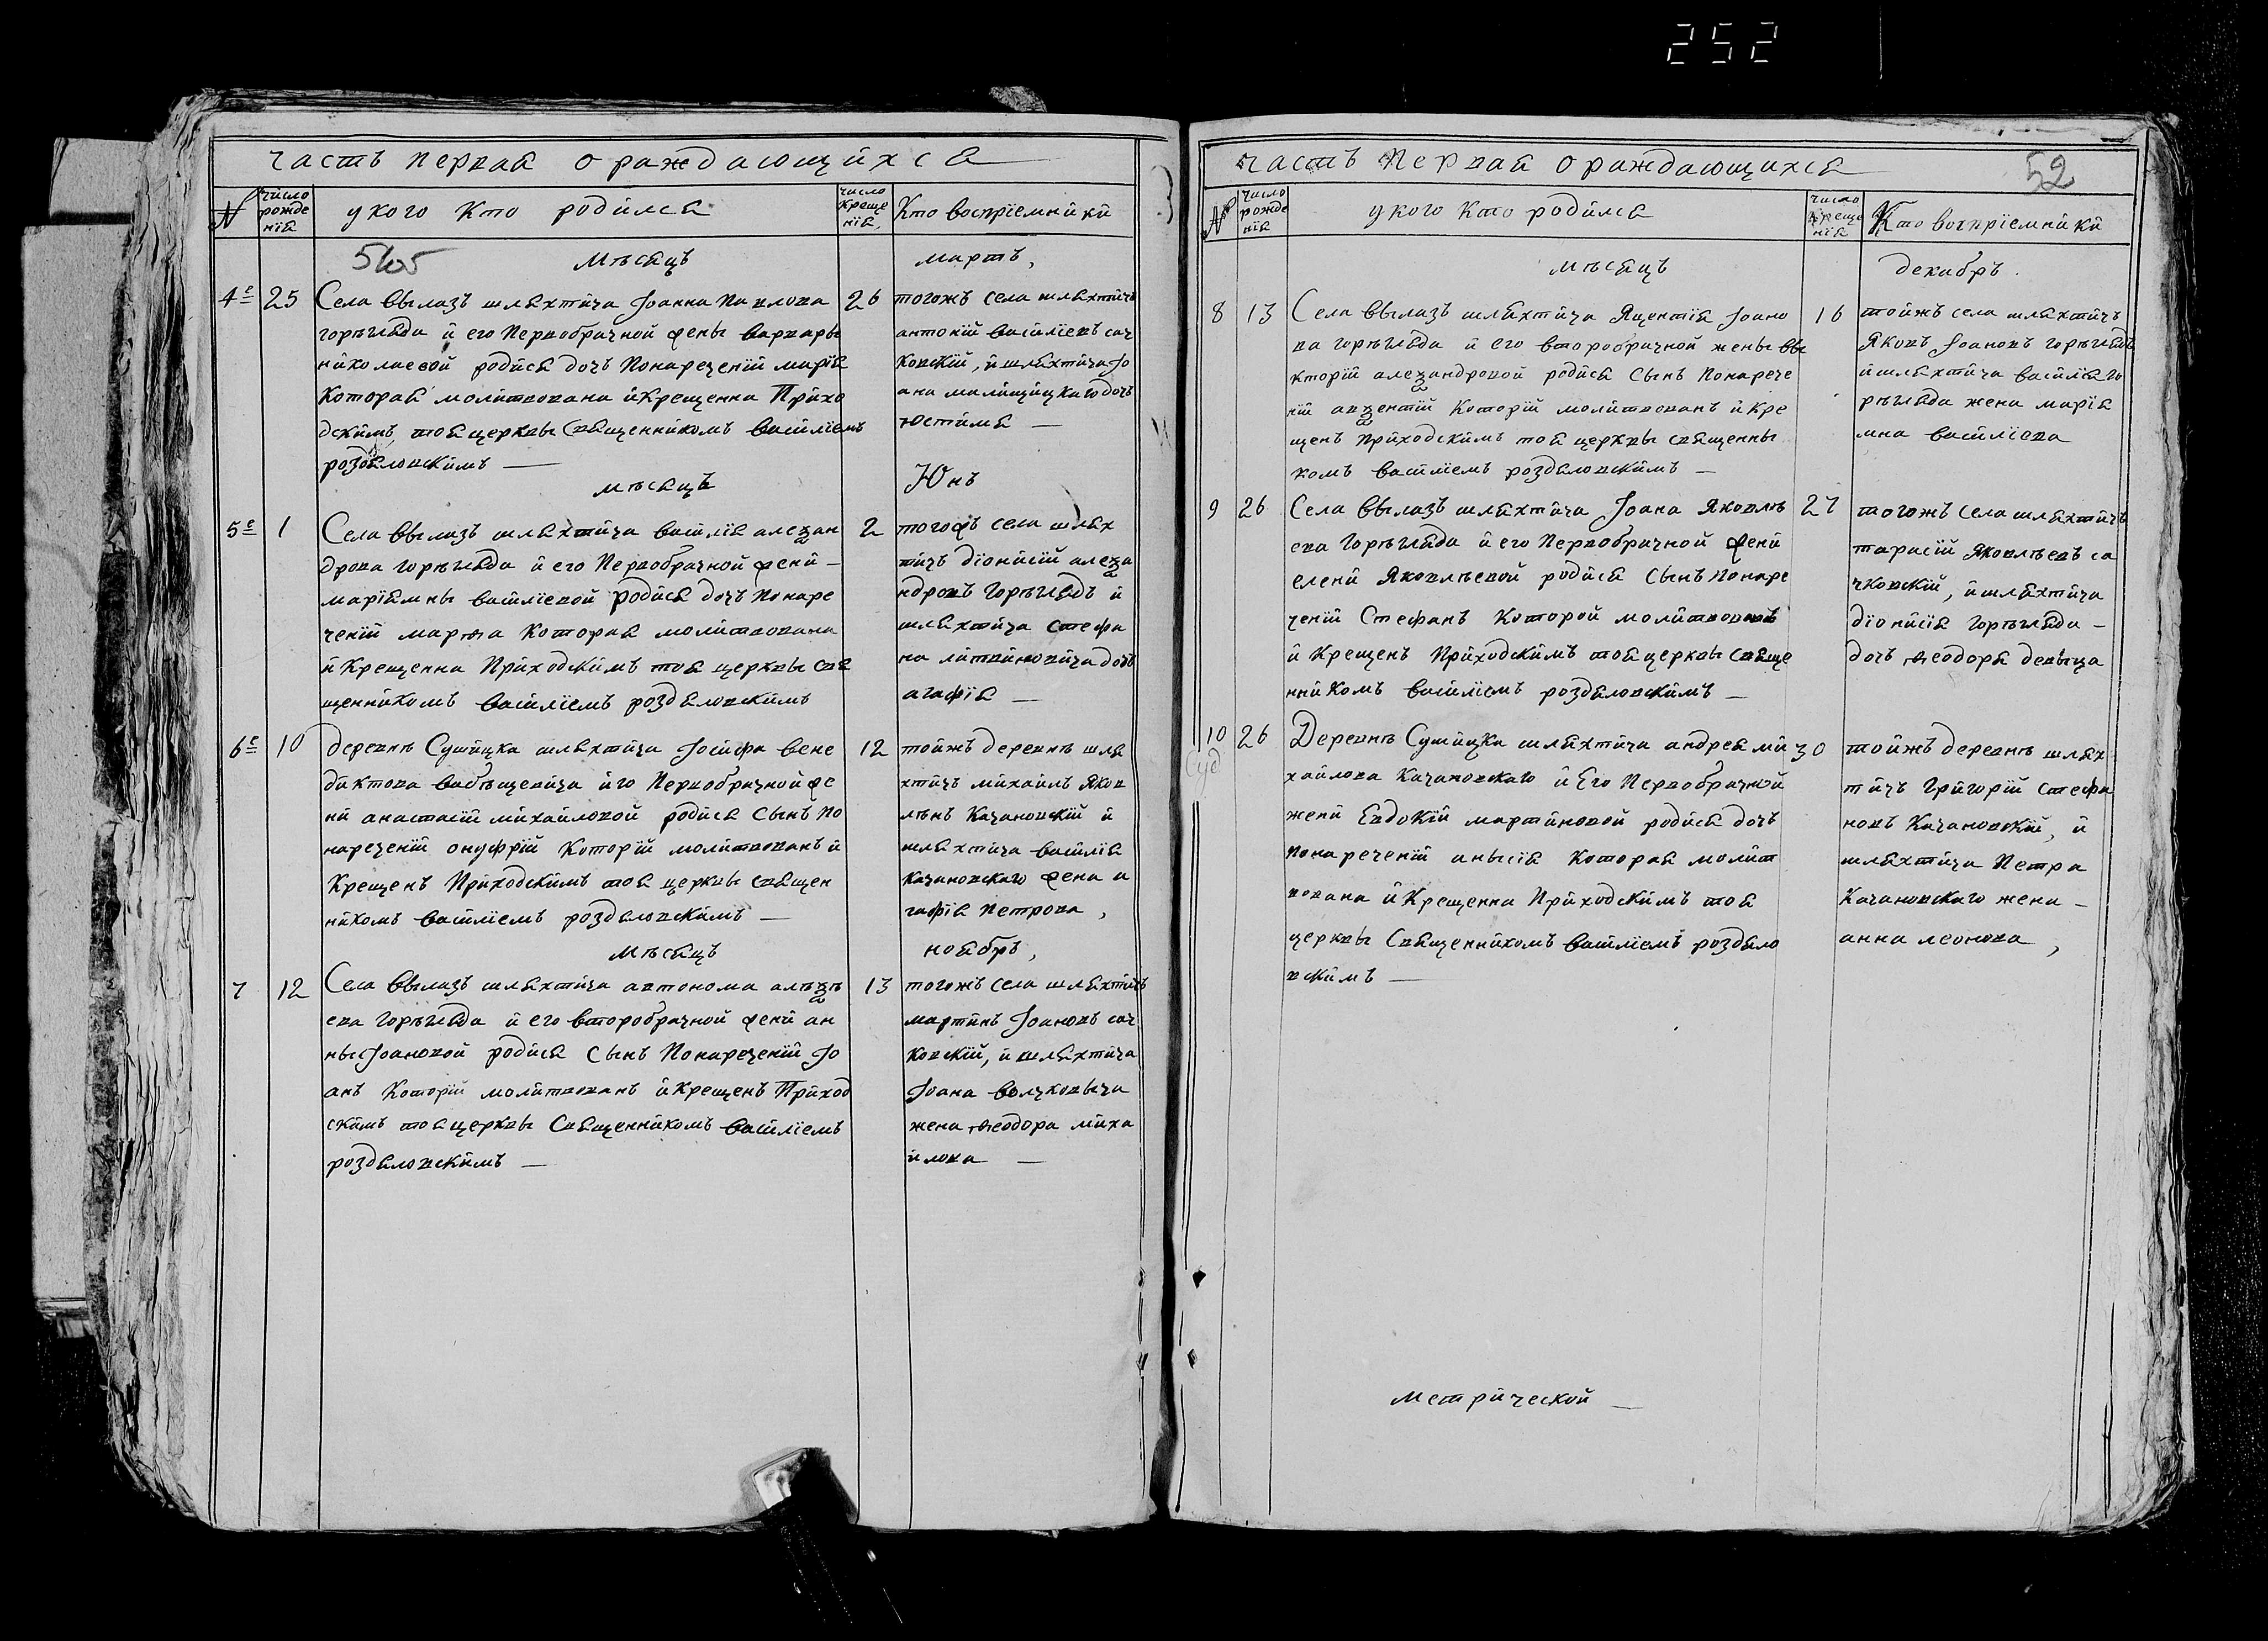 252
часть первая о раждающихся
№ число рождения у кого кто родился число крещения, Кто восприемники
565 мѣсяцъ мартъ,
4е 25 Села Вылазъ шляхтича Іоанна Павлова 26
горегляда и его Первобрачной жены варвары
николаевой родися дочь Понареченіи марія
Которая молитвована и Крещенна Прихо
дскимъ тоя церквы Священникомъ Василіемъ
роздяловскимъ —
тогожъ села шляхтичъ
антоній василіевъ сач
ковскій, и шляхтича Іо
ана малищицкаго дочь
юстима —
мѣсяцъ Юнь
5е 1 Села Вылазъ шляхтича василія алеѯан 2
дрова горегляда и его Первобрачной жени —
маріямны василіевой родися дочь Понаре
ченіи марѳа Которая молитвована
и Крещенна Приходскимъ тоя церквы свя
щенникомъ василіемъ роздяловскимъ
тогожъ села шлях
тичъ діонисій алеѯа
ндровъ горѣглядъ и
шляхтича стефа
на литвиновича дочь
агафія —
6е 10 деревнѣ Сушицка шляхтича Іосифа вене 12
диктова и его Первобрачной же
ни анастасіи михайловой родися Сынъ По
нареченіи онуфрій Которій молитвованъ и
Крещенъ Приходскимъ тоя церквы священ
никомъ василіемъ роздяловскимъ —
тойжъ деревнѣ шля
хтичъ михаилъ яков
лѣвъ Качановскій и
шляхтича василія
Качановскаго жена а
гафія Петрова,
мѣсяцъ ноябрь,
7 12 Села Вылазъ шляхтича автонома алѣѯѣ 13
ева горѣгляда и его второбрачной жени ан
ны Іоановой родися Сынъ Понареченіи Іо
анъ Которій молитвованъ и Крещенъ Приход
скимъ тоя церквы Священникомъ василіемъ
роздяловскимъ —
тогожъ села шляхтичъ
мартинъ Іоановъ сач
ковскій, и шляхтича
Іоана волчковыча
жена ѳеодора миха
илова —
часть Первая о раждающихся
52
№ число рождения у кого кто родился число крещения Кто восприемники
мѣсяцъ декабрь.
8 13 Села Вылазъ шляхтича Яцентія Іоано 16
ва горѣгляда и его второбрачной жены ви
кторіи алеѯандровой родися Сынъ Понарече
ніи авѯентій Которій молитвованъ и Кре
щенъ Приходскимъ тоя церквы священны
комъ василіемъ роздяловскимъ —
тойжъ села шляхтичъ
Яковъ Іоановъ горѣглядъ
и шляхтича василія го
рѣгляда жена марія
мна василіева
9 26 Села Вылазъ шляхтича Іоана Яковлѣ 27
ева горѣгляда и его Первобрачной жени
елени Яковлѣевой родися Сынъ Понаре
ченіи Стефанъ Которой молитвованъ
и Крещенъ Приходскимъ тоя церквы Свяще
нникомъ василіемъ роздяловскимъ —
тогожъ села шляхтичъ
тарасій Яковлѣевъ са
чковскій, и шляхтича
діонисія горѣгляда —
дочь ѳеодора девыца
10 26 Деревнѣ Сушицка шляхтича андрея ми 30
Суд
хайлова Качановскаго и Его Первобрачной
жени Евдокіи мартиновой родися дочь
понареченіи анысія Которая молит
вована и Крещенна Приходскимъ тоя
церквы Священникомъ василіемъ роздяло
вскимъ —
тойжъ деревнѣ шлях
тичъ Григорій стефа
новъ Качановскій, и
шляхтича Петра
Качановскаго жена —
анна леонова,
метрической —